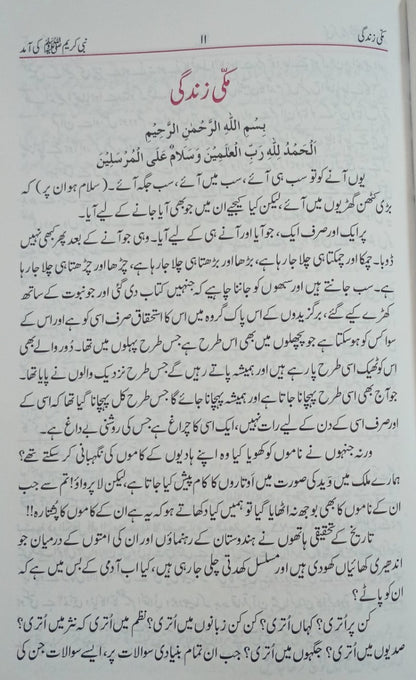 مکّی زندگی ۱۱ نبی کریم ﷺ کی آمد
مکّی زندگی
بِسْمِ اللّٰهِ الرَّحْمٰنِ الرَّحِيْمِ
اَلْحَمْدُ لِلّٰهِ رَبِّ الْعٰلَمِيْنَ وَسَلَامٌ عَلَى الْمُرْسَلِيْنَ
یوں آنے کو تو سب ہی آئے، سب میں آئے، سب جگہ آئے۔ (سلام ہو ان پر) کہ
بڑی کٹھن گھڑیوں میں آئے، لیکن کیا کیجیے ان میں جو بھی آیا جانے کے لیے آیا۔
پر ایک اور صرف ایک، جو آیا اور آنے ہی کے لیے آیا۔ وہی جو آنے کے بعد پھر بھی نہیں
ڈوبا۔ چمکا اور چمکتا ہی چلا جا رہا ہے، بڑھا اور بڑھتا ہی چلا جا رہا ہے، چڑھا اور چڑھتا ہی چلا جا رہا
ہے۔ سب جانتے ہیں اور سبھوں کو جاننا چاہیے کہ جنہیں کتاب دی گئی اور جو نبوت کے ساتھ
کھڑے کیے گئے، برگزیدوں کے اس پاک گروہ میں اس کا استحقاق صرف اسی کو ہے اور اس کے
سوا کس کو ہوسکتا ہے جو پچھلوں میں بھی اس طرح ہے جس طرح پہلوں میں تھا۔ دُور والے بھی
اس کو ٹھیک اسی طرح پا رہے ہیں اور ہمیشہ پاتے رہیں گے جس طرح نزدیک والوں نے پایا تھا۔
جو آج بھی اسی طرح پہچانا جاتا ہے اور ہمیشہ پہچانا جائے گا جس طرح کل پہچانا گیا تھا کہ اسی کے
اور صرف اسی کے دن کے لیے رات نہیں، ایک اسی کا چراغ ہے جس کی روشنی بے داغ ہے۔
ورنہ جنہوں نے ناموں کو کھویا کیا وہ اپنے ہادیوں کے کاموں کی نگہبانی کر سکتے تھے؟
ہمارے ملک میں وید کی صورت میں اُوتاروں کا کام پیش کیا جاتا ہے، لیکن لا پرواؤ! تم سے جب
ان کے ناموں کا بھی بوجھ نہ اٹھایا گیا تو ہمیں کیا دکھاتے ہو کہ یہ ہے ان کے کاموں کا پشتارہ!!
تاریخ کے تحقیقی ہاتھوں نے ہندوستان کے رہنماؤں اور ان کی امتوں کے درمیان جو
اندھیری کھائیاں کھودی ہیں اور مسلسل کھدتی چلی جا رہی ہیں، کیا اب آدمی کے بس میں ہے کہ
ان کو پاٹے؟
کن پر اُتری؟ کہاں اُتری؟ کن کن زبانوں میں اُتری؟ نظم میں اُتری کہ نثر میں اُتری؟
صدیوں میں اُتری؟ جگہوں میں اُتری؟ جب ان تمام بنیادی سوالات پر، ایسے سوالات جن کی